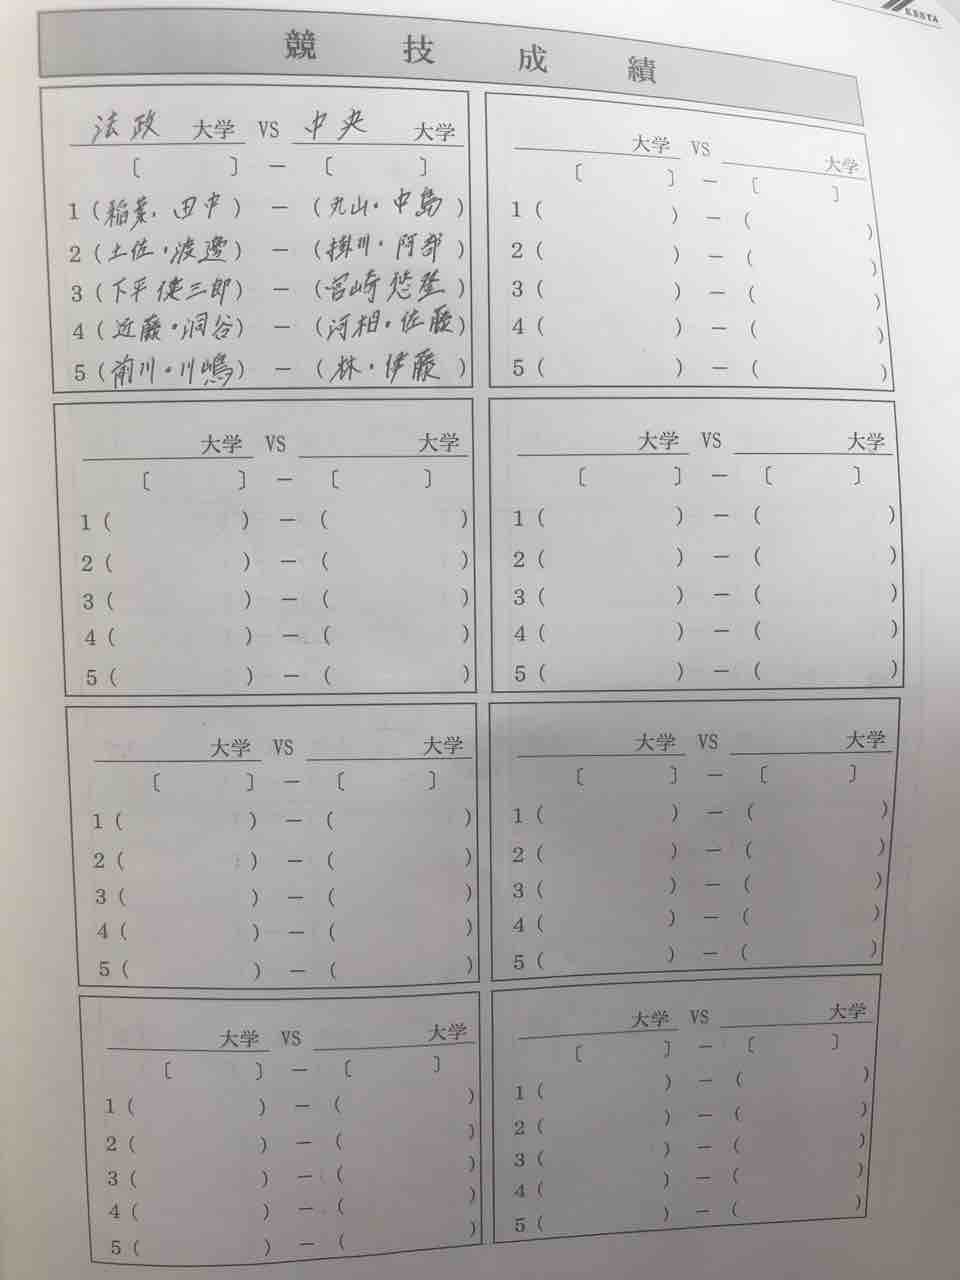 KENTA
競技成績
法政 大学 VS 中央 大学
〔 〕 － 〔 〕
1 ( 稲葉・田中 ) － ( 丸山・中島 )
2 ( 土佐・渡邊 ) － ( 掛川・阿部 )
3 ( 下平健三郎 ) － ( 宮崎悠登 )
4 ( 近藤・洞谷 ) － ( 河相・佐藤 )
5 ( 前川・川嶋 ) － ( 林・伊藤 )
大学 VS 大学
〔 〕 － 〔 〕
1 ( ) － ( )
2 ( ) － ( )
3 ( ) － ( )
4 ( ) － ( )
5 ( ) － ( )
大学 VS 大学
〔 〕 － 〔 〕
1 ( ) － ( )
2 ( ) － ( )
3 ( ) － ( )
4 ( ) － ( )
5 ( ) － ( )
大学 VS 大学
〔 〕 － 〔 〕
1 ( ) － ( )
2 ( ) － ( )
3 ( ) － ( )
4 ( ) － ( )
5 ( ) － ( )
大学 VS 大学
〔 〕 － 〔 〕
1 ( ) － ( )
2 ( ) － ( )
3 ( ) － ( )
4 ( ) － ( )
5 ( ) － ( )
大学 VS 大学
〔 〕 － 〔 〕
1 ( ) － ( )
2 ( ) － ( )
3 ( ) － ( )
4 ( ) － ( )
5 ( ) － ( )
大学 VS 大学
〔 〕 － 〔 〕
1 ( ) － ( )
2 ( ) － ( )
3 ( ) － ( )
4 ( ) － ( )
5 ( ) － ( )
大学 VS 大学
〔 〕 － 〔 〕
1 ( ) － ( )
2 ( ) － ( )
3 ( ) － ( )
4 ( ) － ( )
5 ( ) － ( )